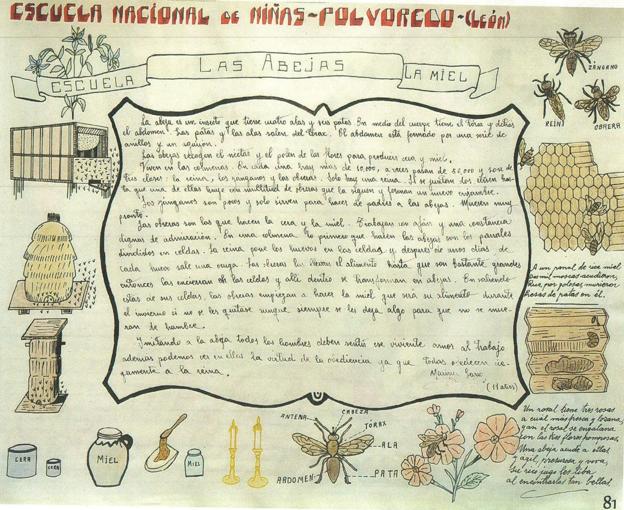 ESCUELA NACIONAL DE NIÑAS-POLVOREDO-(León)
ESCUELA
LAS ABEJAS
LA MIEL
ZÁNGANO
REINA
OBRERA
La abeja es un insecto que tiene cuatro alas y seis patas. En medio del cuerpo tiene el tórax y detrás
el abdomen. Las patas y las alas salen del tórax. El abdomen está formado por una serie de
anillos y un aguijón.
Las abejas recogen el néctar y el polen de las flores para producir cera y miel.
Viven en las colmenas. En cada una hay más de 10.000, a veces pasan de 50,000 y son de
tres clases: la reina, los zánganos y las obreras. Solo hay una reina. Si se juntan dos
ta que una de ellas huye con multitud de obreras que la siguen y forman un nuevo enjambre.
Los zánganos son pocos y solo sirven para hacer de padres a las abejas. Mueren muy
pronto.
Las obreras son las que hacen la cera y la miel. Trabajan con afán y una constancia
digna de admiración. En una colmena lo primero que hacen las abejas son los panales
divididos en celdas. La reina pone los huevos en las celdas y después de unos días de
cada huevo sale una oruga. Las obreras las llevan el alimento hasta que son bastante grandes
entonces las encierran en las celdas y allí dentro se transforman en abejas. En saliendo
estas de sus celdas, las obreras empiezan a hacer la miel que será su alimento durante
el invierno si no se les quitase aunque siempre se les deja algo para que no se mue-
ran de hambre.
Imitando a la abeja todos los hombres deben sentir ese viviente amor al trabajo
además podemos ver en ellas la virtud de la obediencia ya que todas obedecen cie-
gamente a la reina.
(11 años)
A un panal de rica miel
Dos mil moscas acudieron,
Que por golosas murieron
Presas de patas en él.
Un rosal tiene tres rosas
a cual más fresca y lozana,
y an el rosal se engalana
con las tres flores pomposas.
Una abeja acude a ellas
y ágil, presurosa y
al encontrarlas tan bellas
CERA
CERA
MIEL
MIEL
ANTENA
CABEZA
TORAX
ALA
PATA
ABDOMEN
81